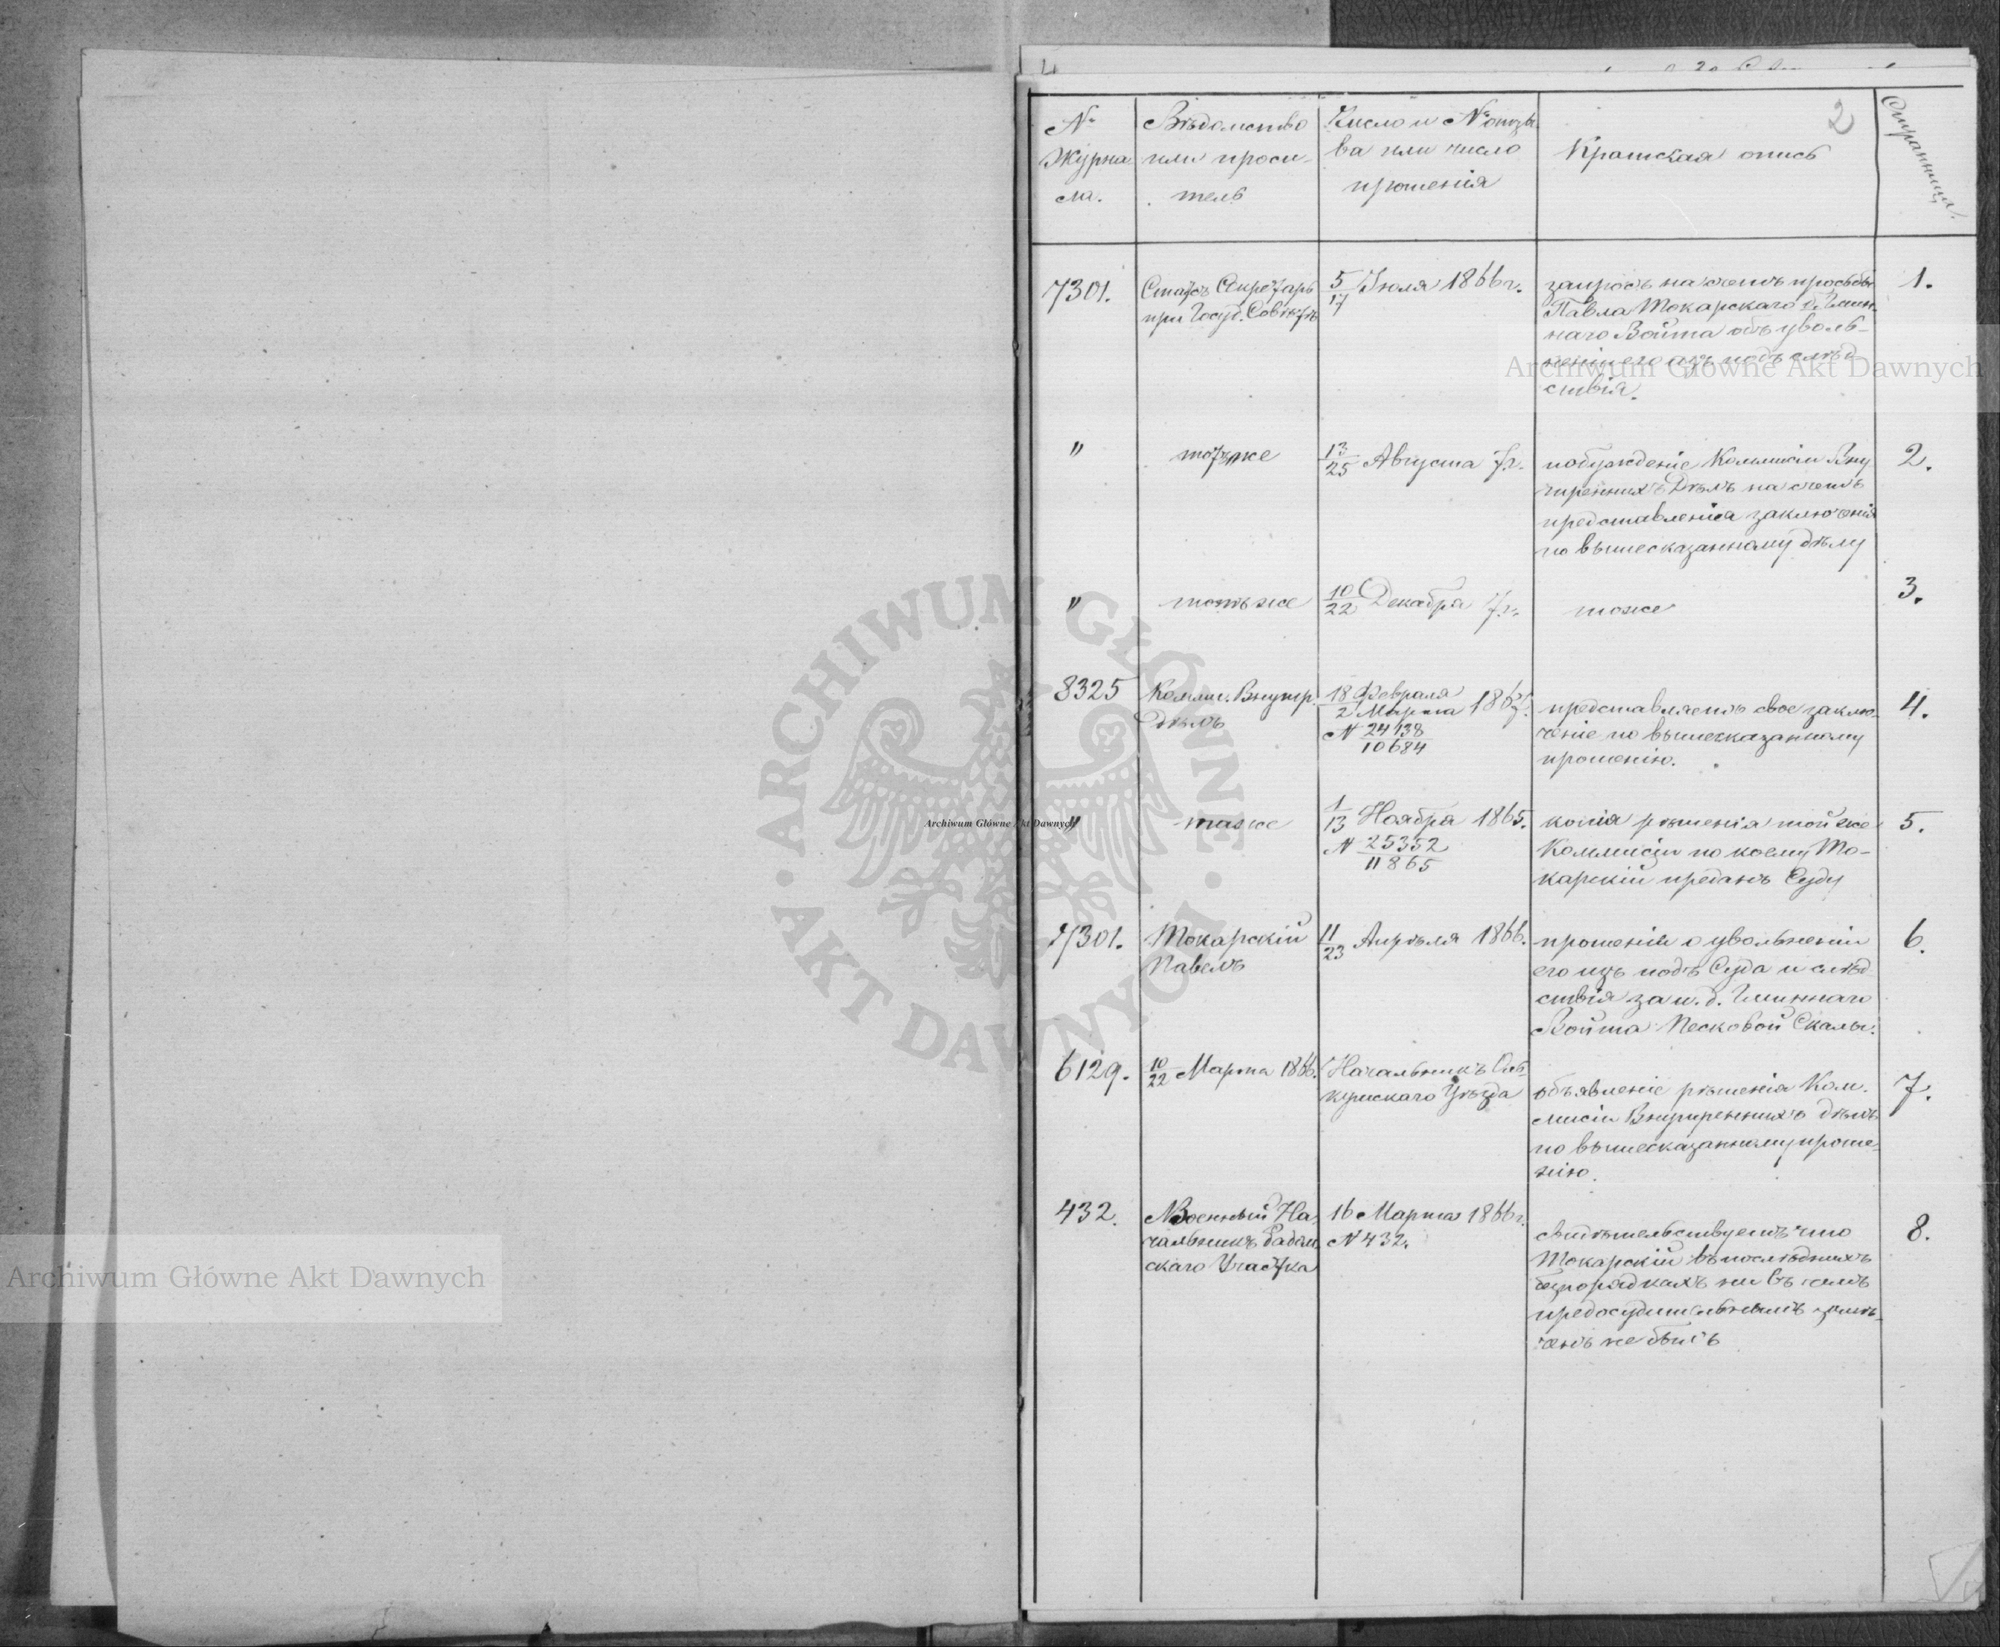 2
№ Журнала.
Вѣдомство или проситель
Число и № отзыва или число прошенія
Краткая опись
Страница.
7301.
Статсъ Секретарь
при Госуд. Совѣтѣ
5/17 Іюля 1866 г.
запросъ насчетъ просьбы
Павла Токарскаго б. Гмин-
наго Войта объ уволь-
неніи его изъ подъ слѣд
ствія.
1.
"
тотъже
13/25 Августа т.г.
побужденіе Коммисіи Вну
тренныхъ Дѣлъ насчетъ
представленія заключенія
по вышесказанному дѣлу
2.
"
тотъже
10/22 Декабря т.г.
тоже
3.
8325
Комми. Внутр.
дѣлъ
18 Февраля
2 Марта 1867.
№ 24138/10684
представляетъ свое заклю-
ченіе по вышесказанному
прошенію.
4.
"
таже
1/13 Ноября 1865.
№ 25352/11865
копія рѣшенія той же
Коммисіи по коему То-
карскій преданъ Суду
5.
7301.
Токарскій
Павелъ
11/23 Апрѣля 1866.
прошеніе о увольненіи
его изъ подъ Суда и слѣд
ствія за и. д. Гминнаго
Войта Песковой Скалы.
6.
6129.
10/22 Марта 1866.
Начальникъ Оль-
кушскаго Уѣзда
объявленіе рѣшенія Ком.
мисіи Внутренныхъ дѣлъ
по вышесказанному проше-
нію.
7.
432.
Военный На-
чальникъ Радом.
скаго Участка
16 Марта 1866 г.
№ 432.
свидѣтельствуетъ что
Токарскій въ послѣднихъ
безпорядкахъ ни въ чемъ
предосудительнымъ замѣ-
ченъ не былъ
8.
Archiwum Główne Akt Dawnych
Archiwum Główne Akt Dawnych
Archiwum Główne Akt Dawnych
ARCHIWUM GŁÓWNE AKT DAWNYCH